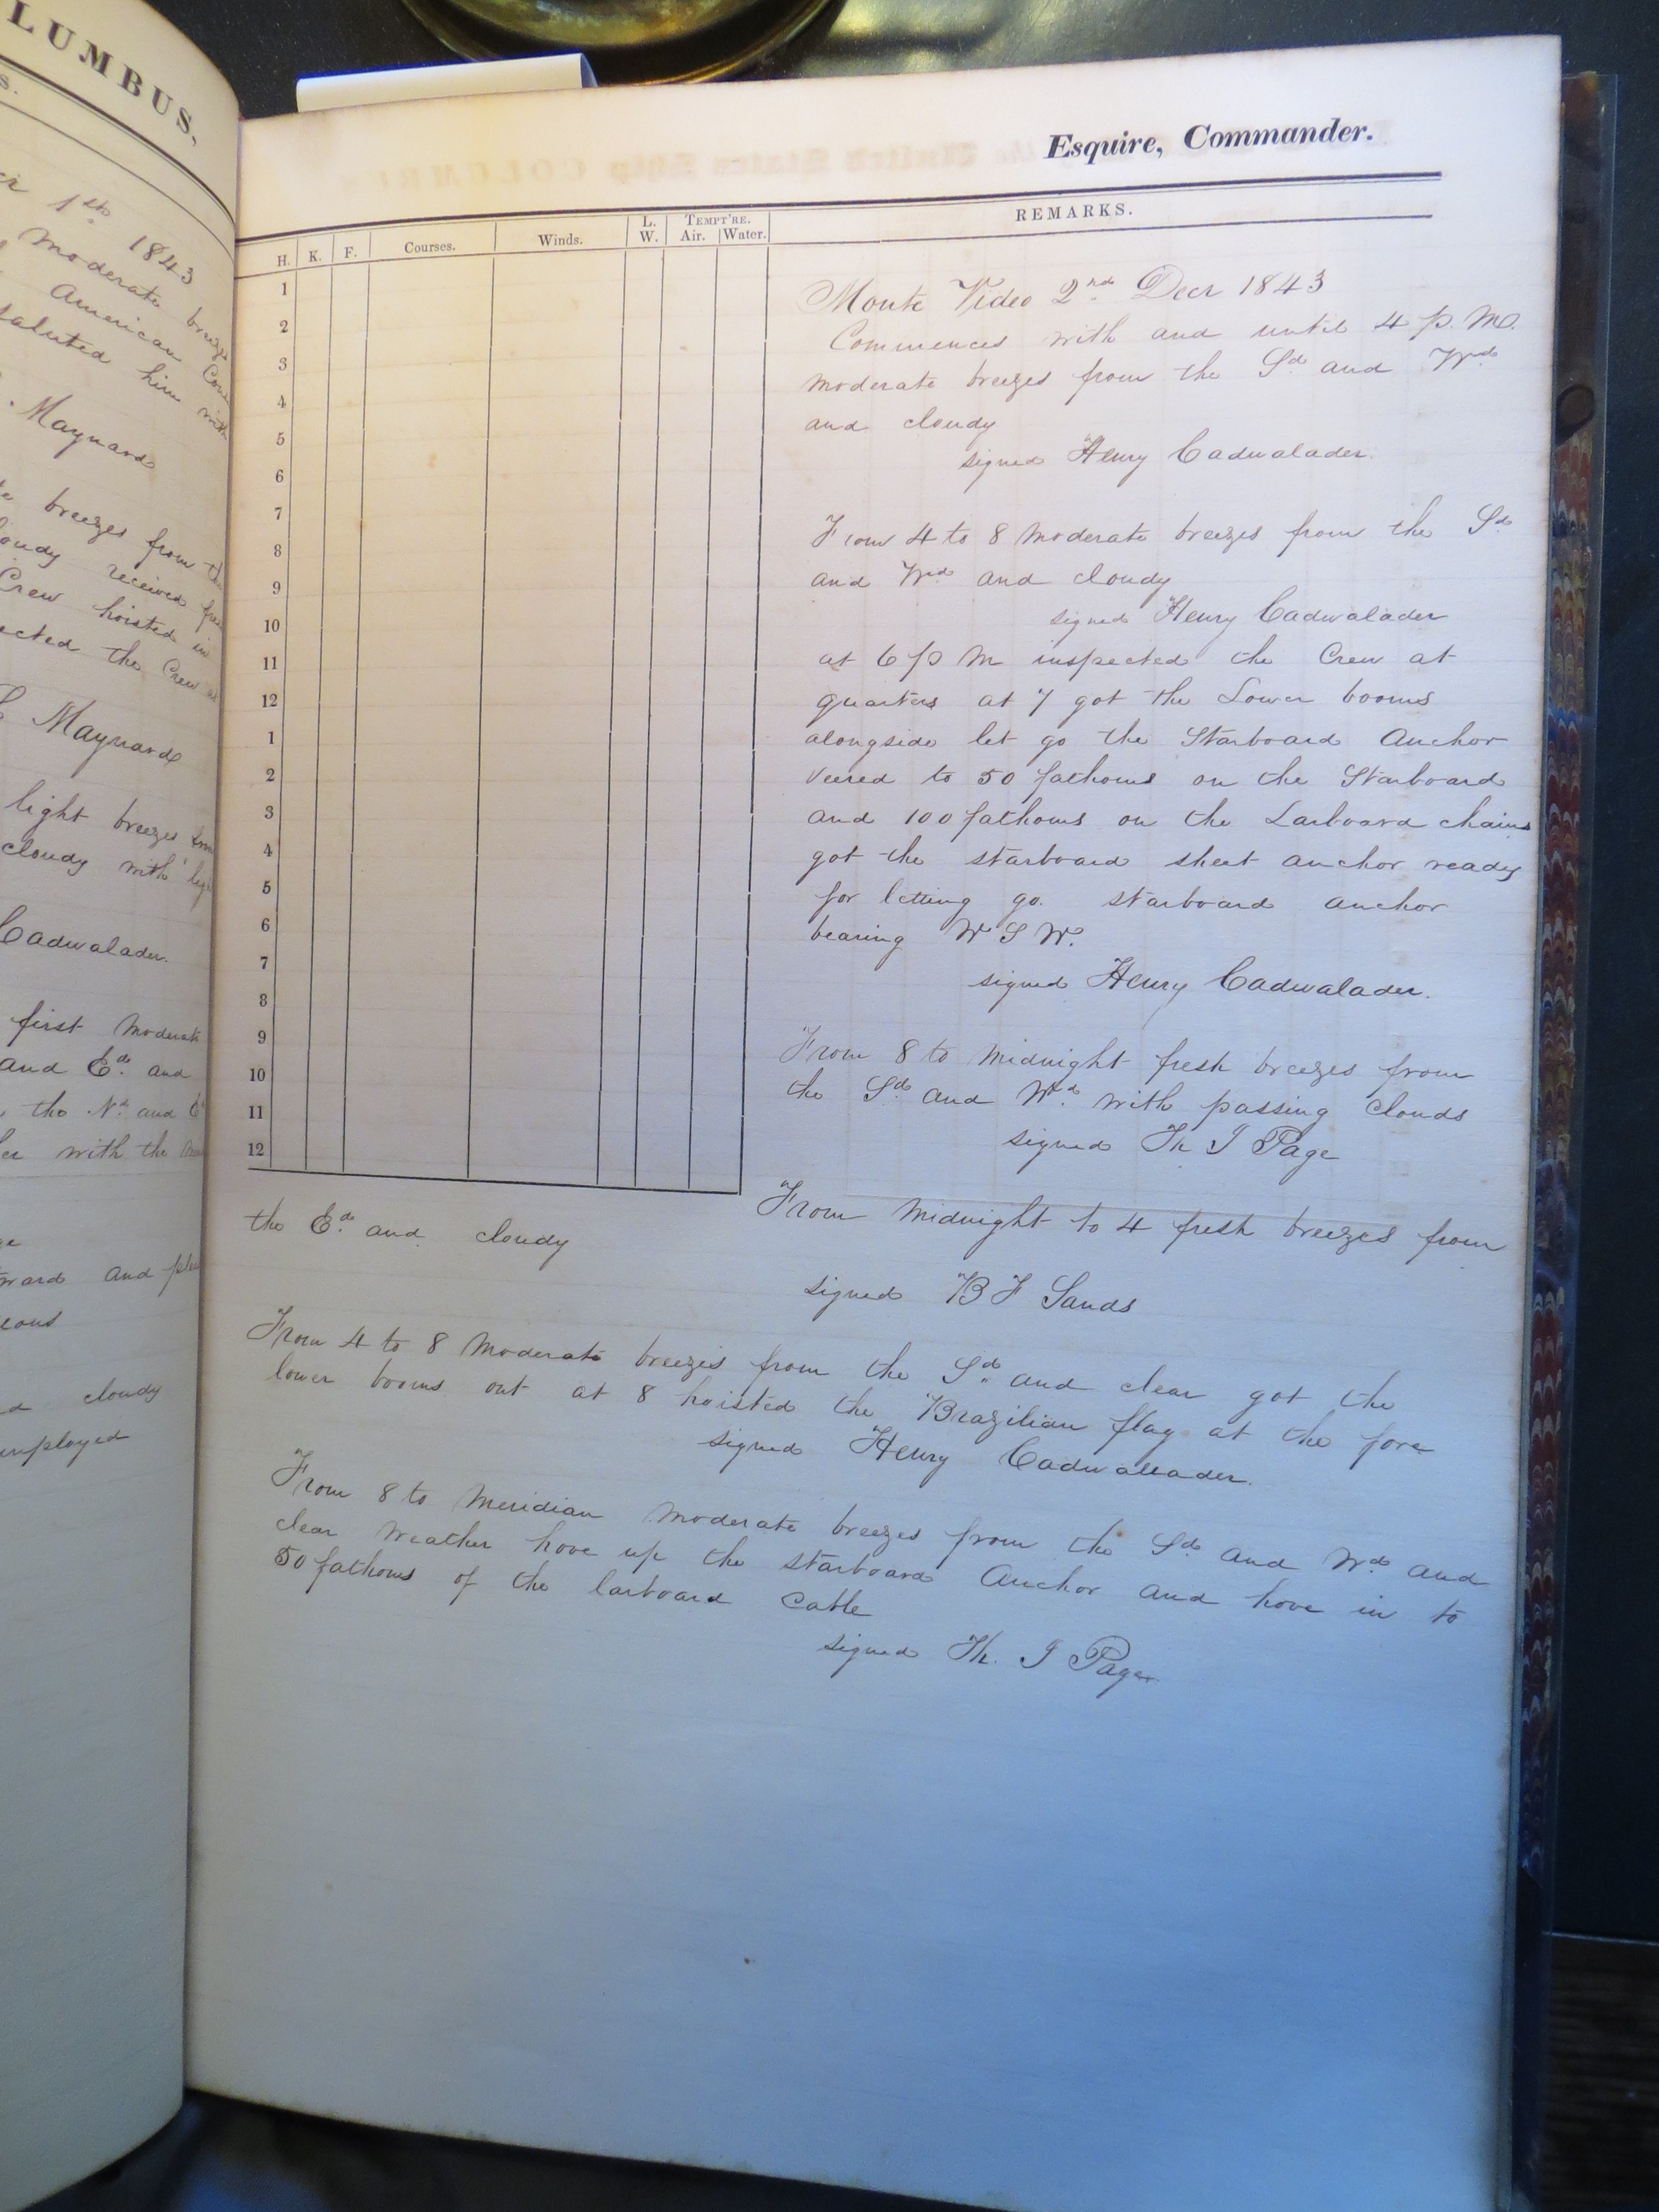 LUMBUS.
1st 1843
moderate breezes
American
saluted him with
Maynard
breezes from the
cloudy received
Crew hoisted in
the Crew at
Maynard
light breezes from
cloudy with
Cadwalader.
first moderate
and Ed. and
the Nd. and Ed
with the
and
cloudy
employed
Esquire, Commander.
H. K. F. Courses. Winds. L. W. TEMPT'RE. Air. Water. REMARKS.
1
2
3
4
5
6
7
8
9
10
11
12
1
2
3
4
5
6
7
8
9
10
11
12
Monte Video 2nd. Decr 1843
Commences with and until 4 p. m.
moderate breezes from the Sd. and Wd.
and cloudy
signed Henry Cadwalader.
From 4 to 8 moderate breezes from the Sd.
and Wd. and cloudy
signed Henry Cadwalader
at 6 p m inspected the Crew at
quarters at 7 got the Lower booms
alongside let go the Starboard Anchor
veered to 50 fathoms on the Starboard
and 100 fathoms on the Larboard chains
got the starboard sheet anchor ready
for letting go. starboard anchor
bearing W S W.
signed Henry Cadwalader.
From 8 to midnight fresh breezes from
the Sd. and Wd. with passing clouds
signed Th J Page
From midnight to 4 fresh breezes from
the Ed. and cloudy
signed B F Sands
From 4 to 8 moderate breezes from the Sd. and clear got the
lower booms out at 8 hoisted the Brazilian flag at the fore
signed Henry Cadwalader.
From 8 to Meridian moderate breezes from the Sd. and Wd. and
clear weather hove up the starboard Anchor and hove in to
50 fathoms of the larboard Cable
signed Th. J Page